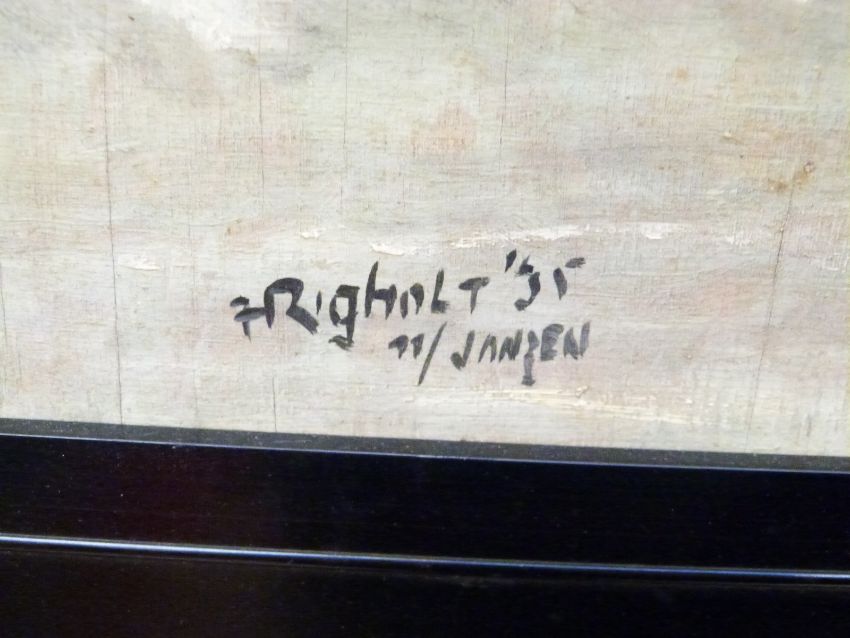 F Righolt '35
n/ JANSEN